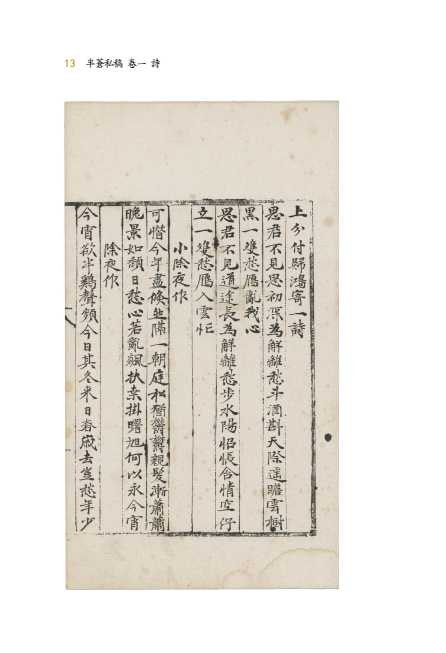 13 半蒼私稿 卷一 詩
上分付歸鴻寄一詩
思君不見思初深為解離愁斗酒斟天際遙瞻雲樹
黑一雙愁鴈亂我心
思君不見道途長為解離愁步水陽怊悵含情空佇
立一雙愁鴈入雲忙
小除夜作
可惜今年盡倏然隔一朝庭松獨鬱鬱親髮漸蕭蕭
晩景如頹日愁心若亂飄扶桑掛曙旭何以永今宵
除夜作
今宵欲半鷄聲頻今日其冬來日春歲去豈愁年少